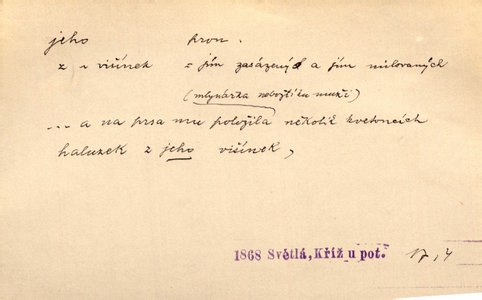 jeho kron.
z višínek = jím zasázených a jím milovaných
(mlynářka nebožtíku muži)
... a na prsa mu položila několik kvetoucích
haluzek z jeho višínek,
1868 Světlá, Kříž u pot. 17, 4